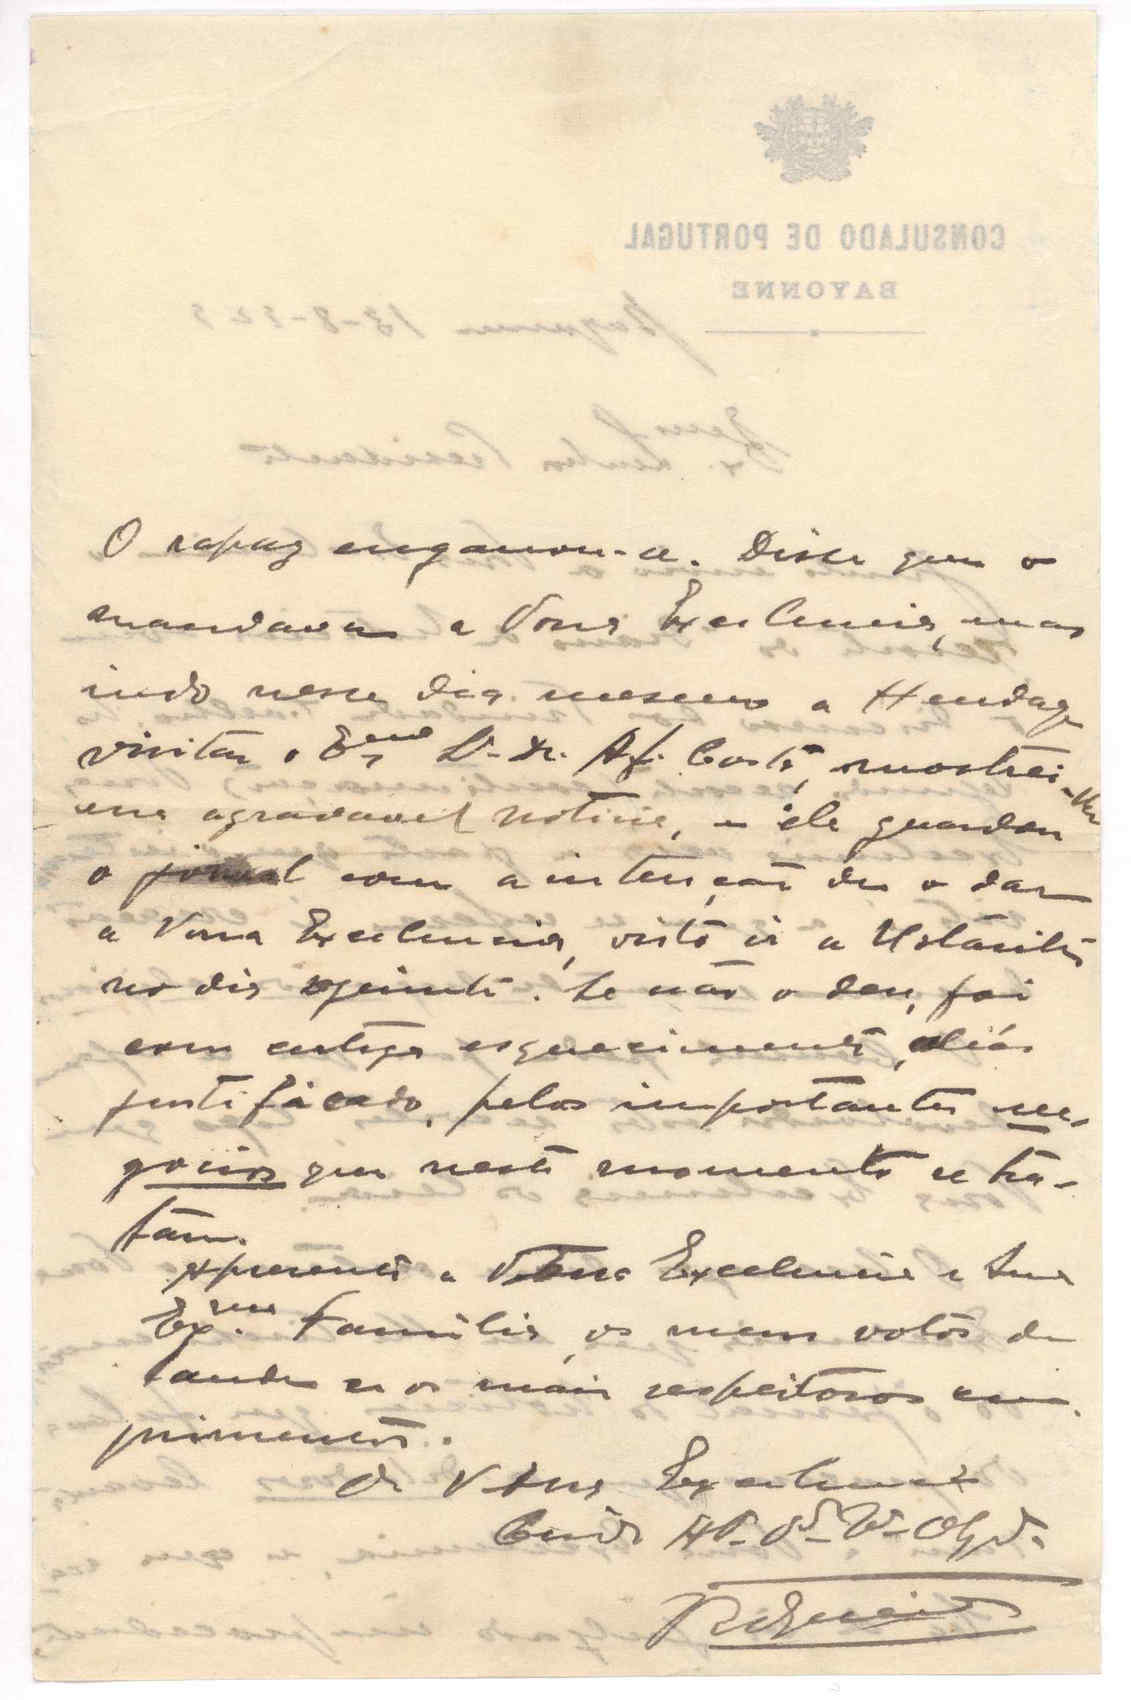 CONSULADO DE PORTUGAL
BAYONNE
O rapaz enganou-se. Disse que o
mandava a Vossa Excelencia, mas
indo nesse dia mesmo a Hendaye
visitar o Exmo Sr. Dr. Af. Costa, mostrei-lhe
uma agradavel noticia, e ele guardou
o jornal com a intenção de o dar
a Vossa Excelencia, visto ir a Ustaritz
no dia seguinte. Se não o deu, foi
com certeza esquecimento, aliás
justificado, pelos importantes ne-
gocios que neste momento se tra-
tam.
Apresento a Vossa Excelencia e Sua
Exma. Familia, os meus votos de
saude e os mais respeitosos cum-
primentos.
De Vossa Excelencia